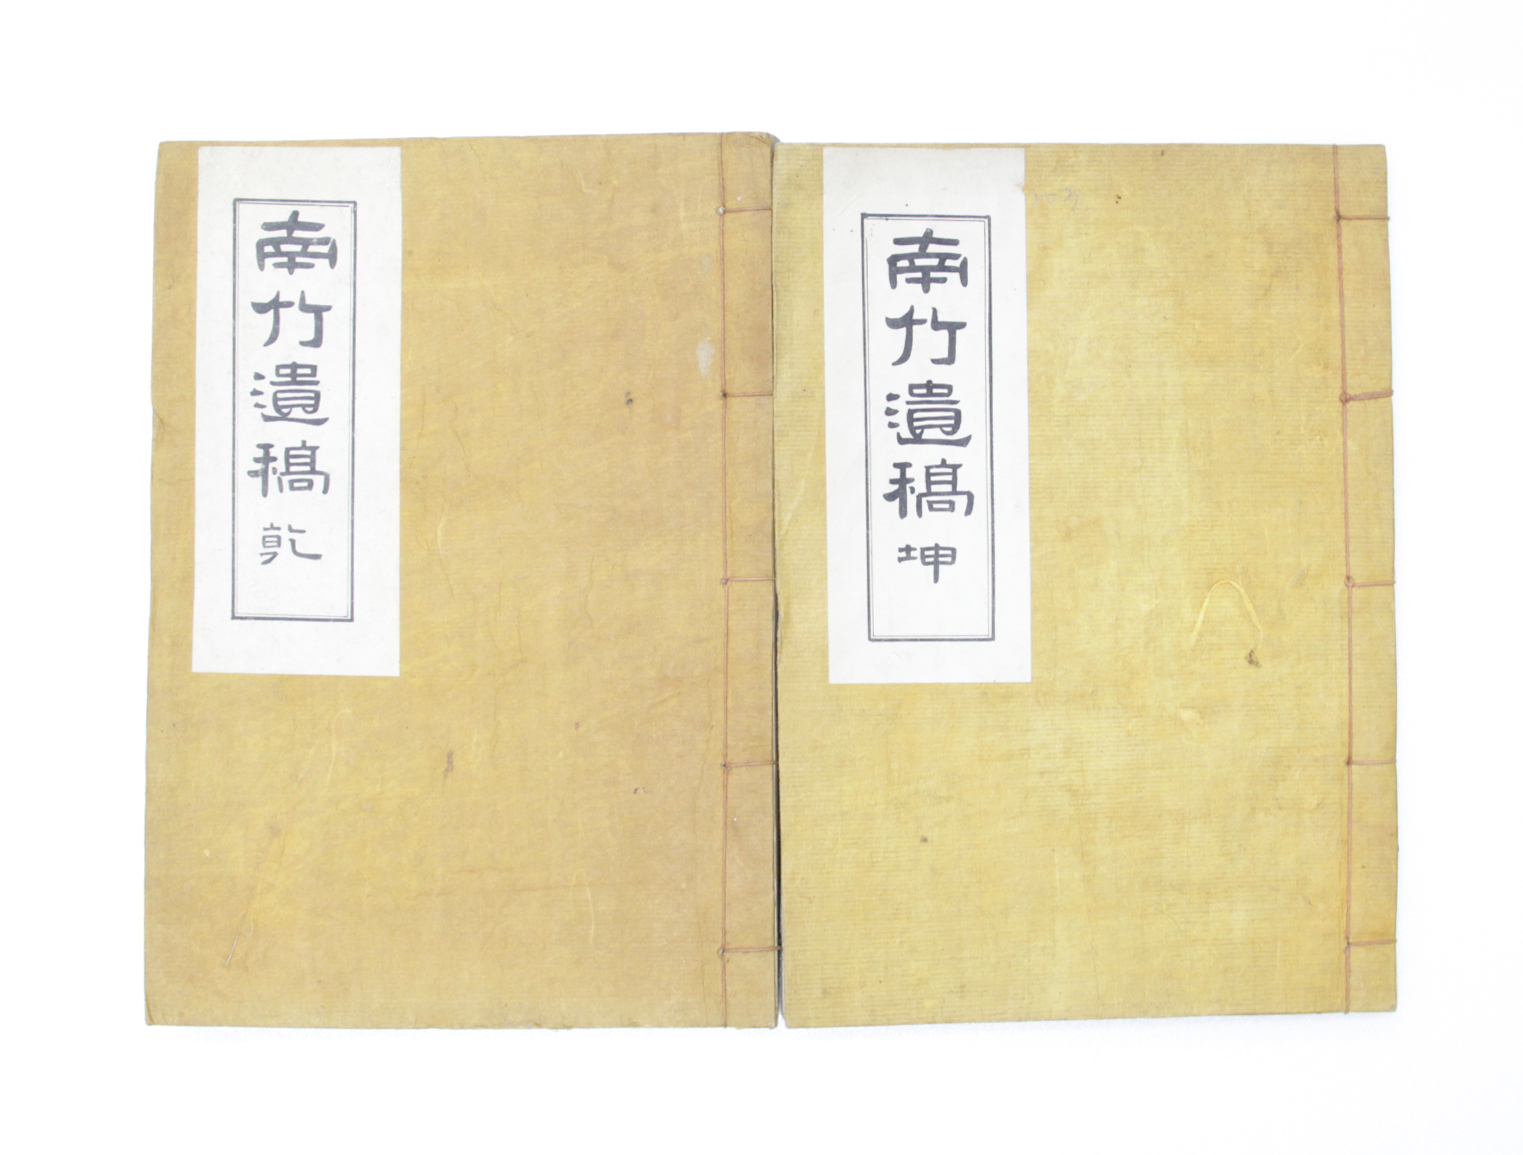 南竹遺稿 乾
南竹遺稿 坤